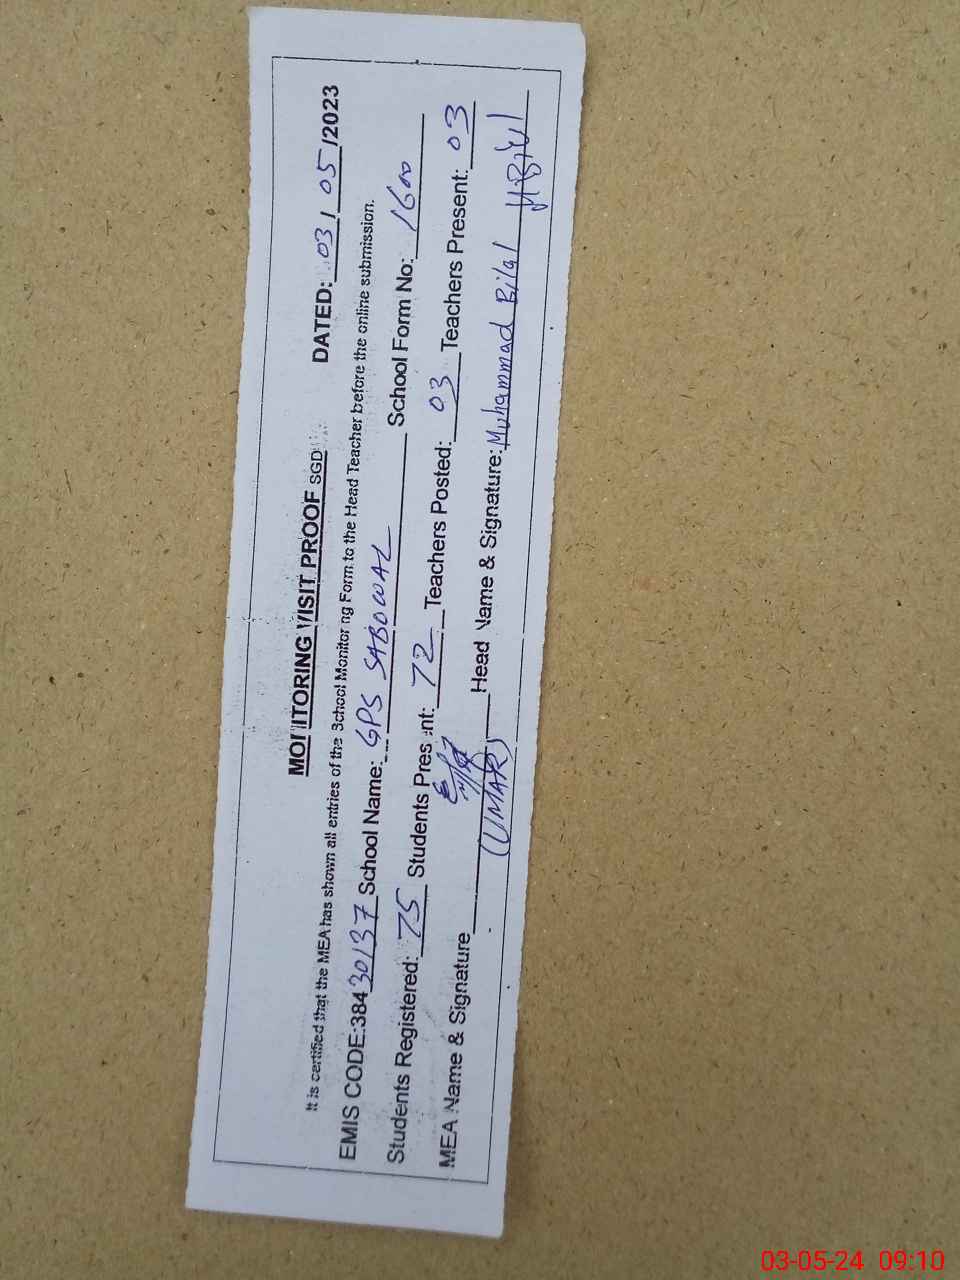 MONITORING VISIT PROOF SGD
DATED: 03 / 05 /2023
It is certified that the MEA has shown all entries of the School Monitoring Form to the Head Teacher before the online submission.
EMIS CODE:38430137 School Name: GPS SABOWAL School Form No: 1600
Students Registered: 75 Students Present: 72 Teachers Posted: 03 Teachers Present: 03
MEA Name & Signature (UMAR) Head Name & Signature: Muhammad Bilal
03-05-24 09:10